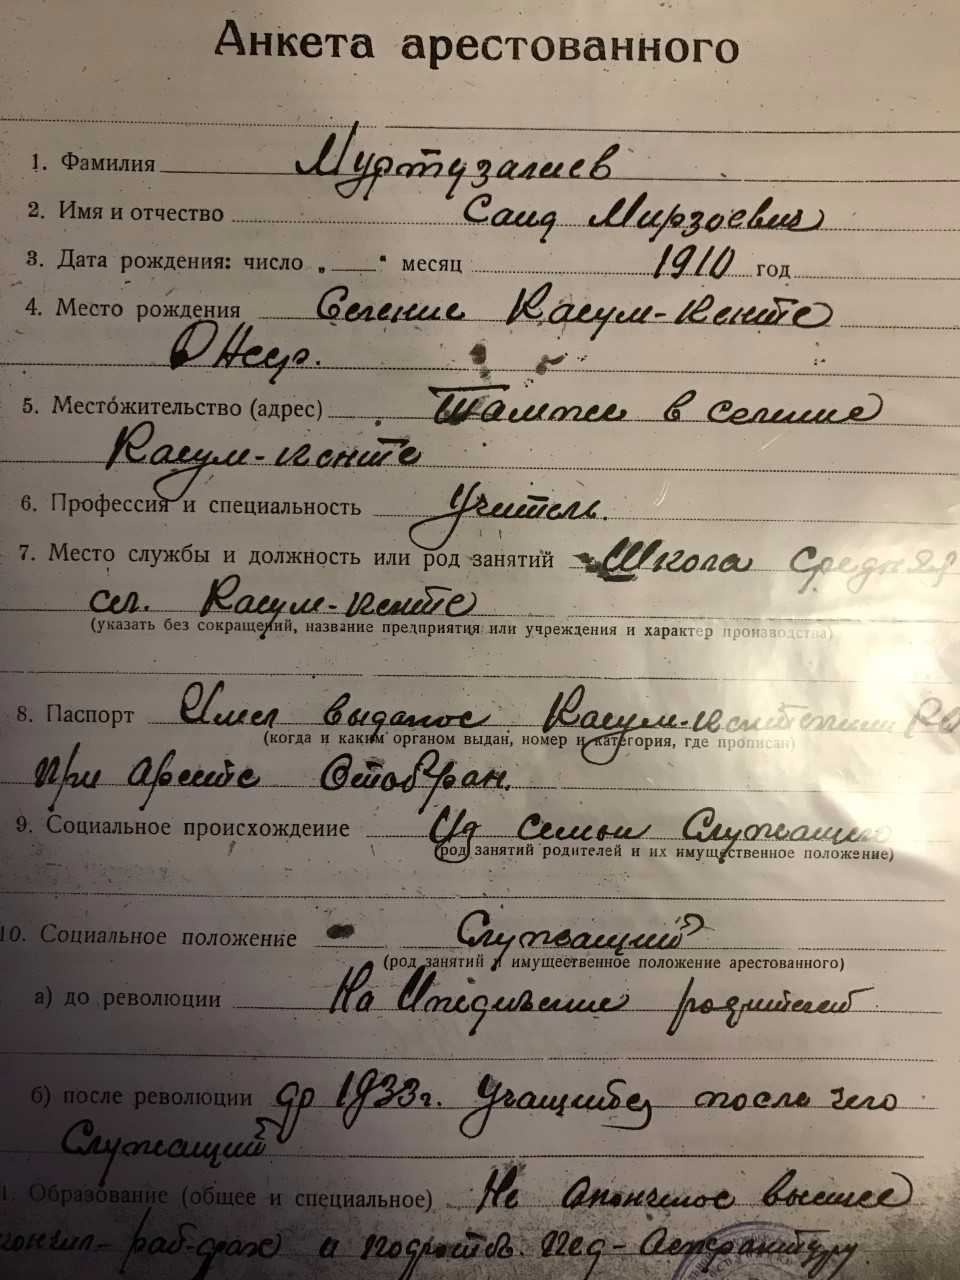 Анкета арестованного
1. Фамилия Муртузалиев
2. Имя и отчество Саид Мирзоевич
3. Дата рождения: число „ “ месяц 1910 год
4. Место рождения Селение Касум-Кенте
ДАсср.
5. Местожительство (адрес) Тамже в селение
Касум-кенте
6. Профессия и специальность Учитель.
7. Место службы и должность или род занятий Школа Средняя
сел. Касум-кенте
(указать без сокращений, название предприятия или учреждения и характер производства)
8. Паспорт Имел выданое Касум-кентским
(когда и каким органом выдан, номер и категория, где прописан)
при аресте Отобран.
9. Социальное происхождение Из семьи Служащего
(род занятий родителей и их имущественное положение)
10. Социальное положение Служащий
(род занятий и имущественное положение арестованного)
а) до революции На Иждивение родителей
б) после революции до 1933г. Учащийся после чего
Служащий
1. Образование (общее и специальное) Не оконченое высшее
раб-фак и пед-Аспирантуру